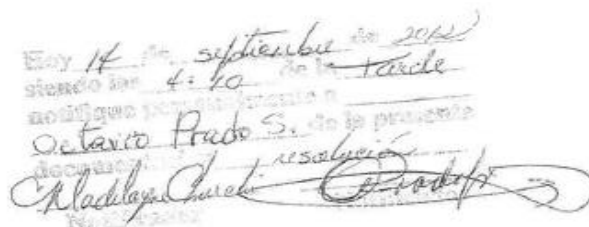 Hoy 14 de septiembre de 2012
siendo las 4:10 de la Tarde
notifique personalmente a
Octavio Prado S. de la presente
documento resolución